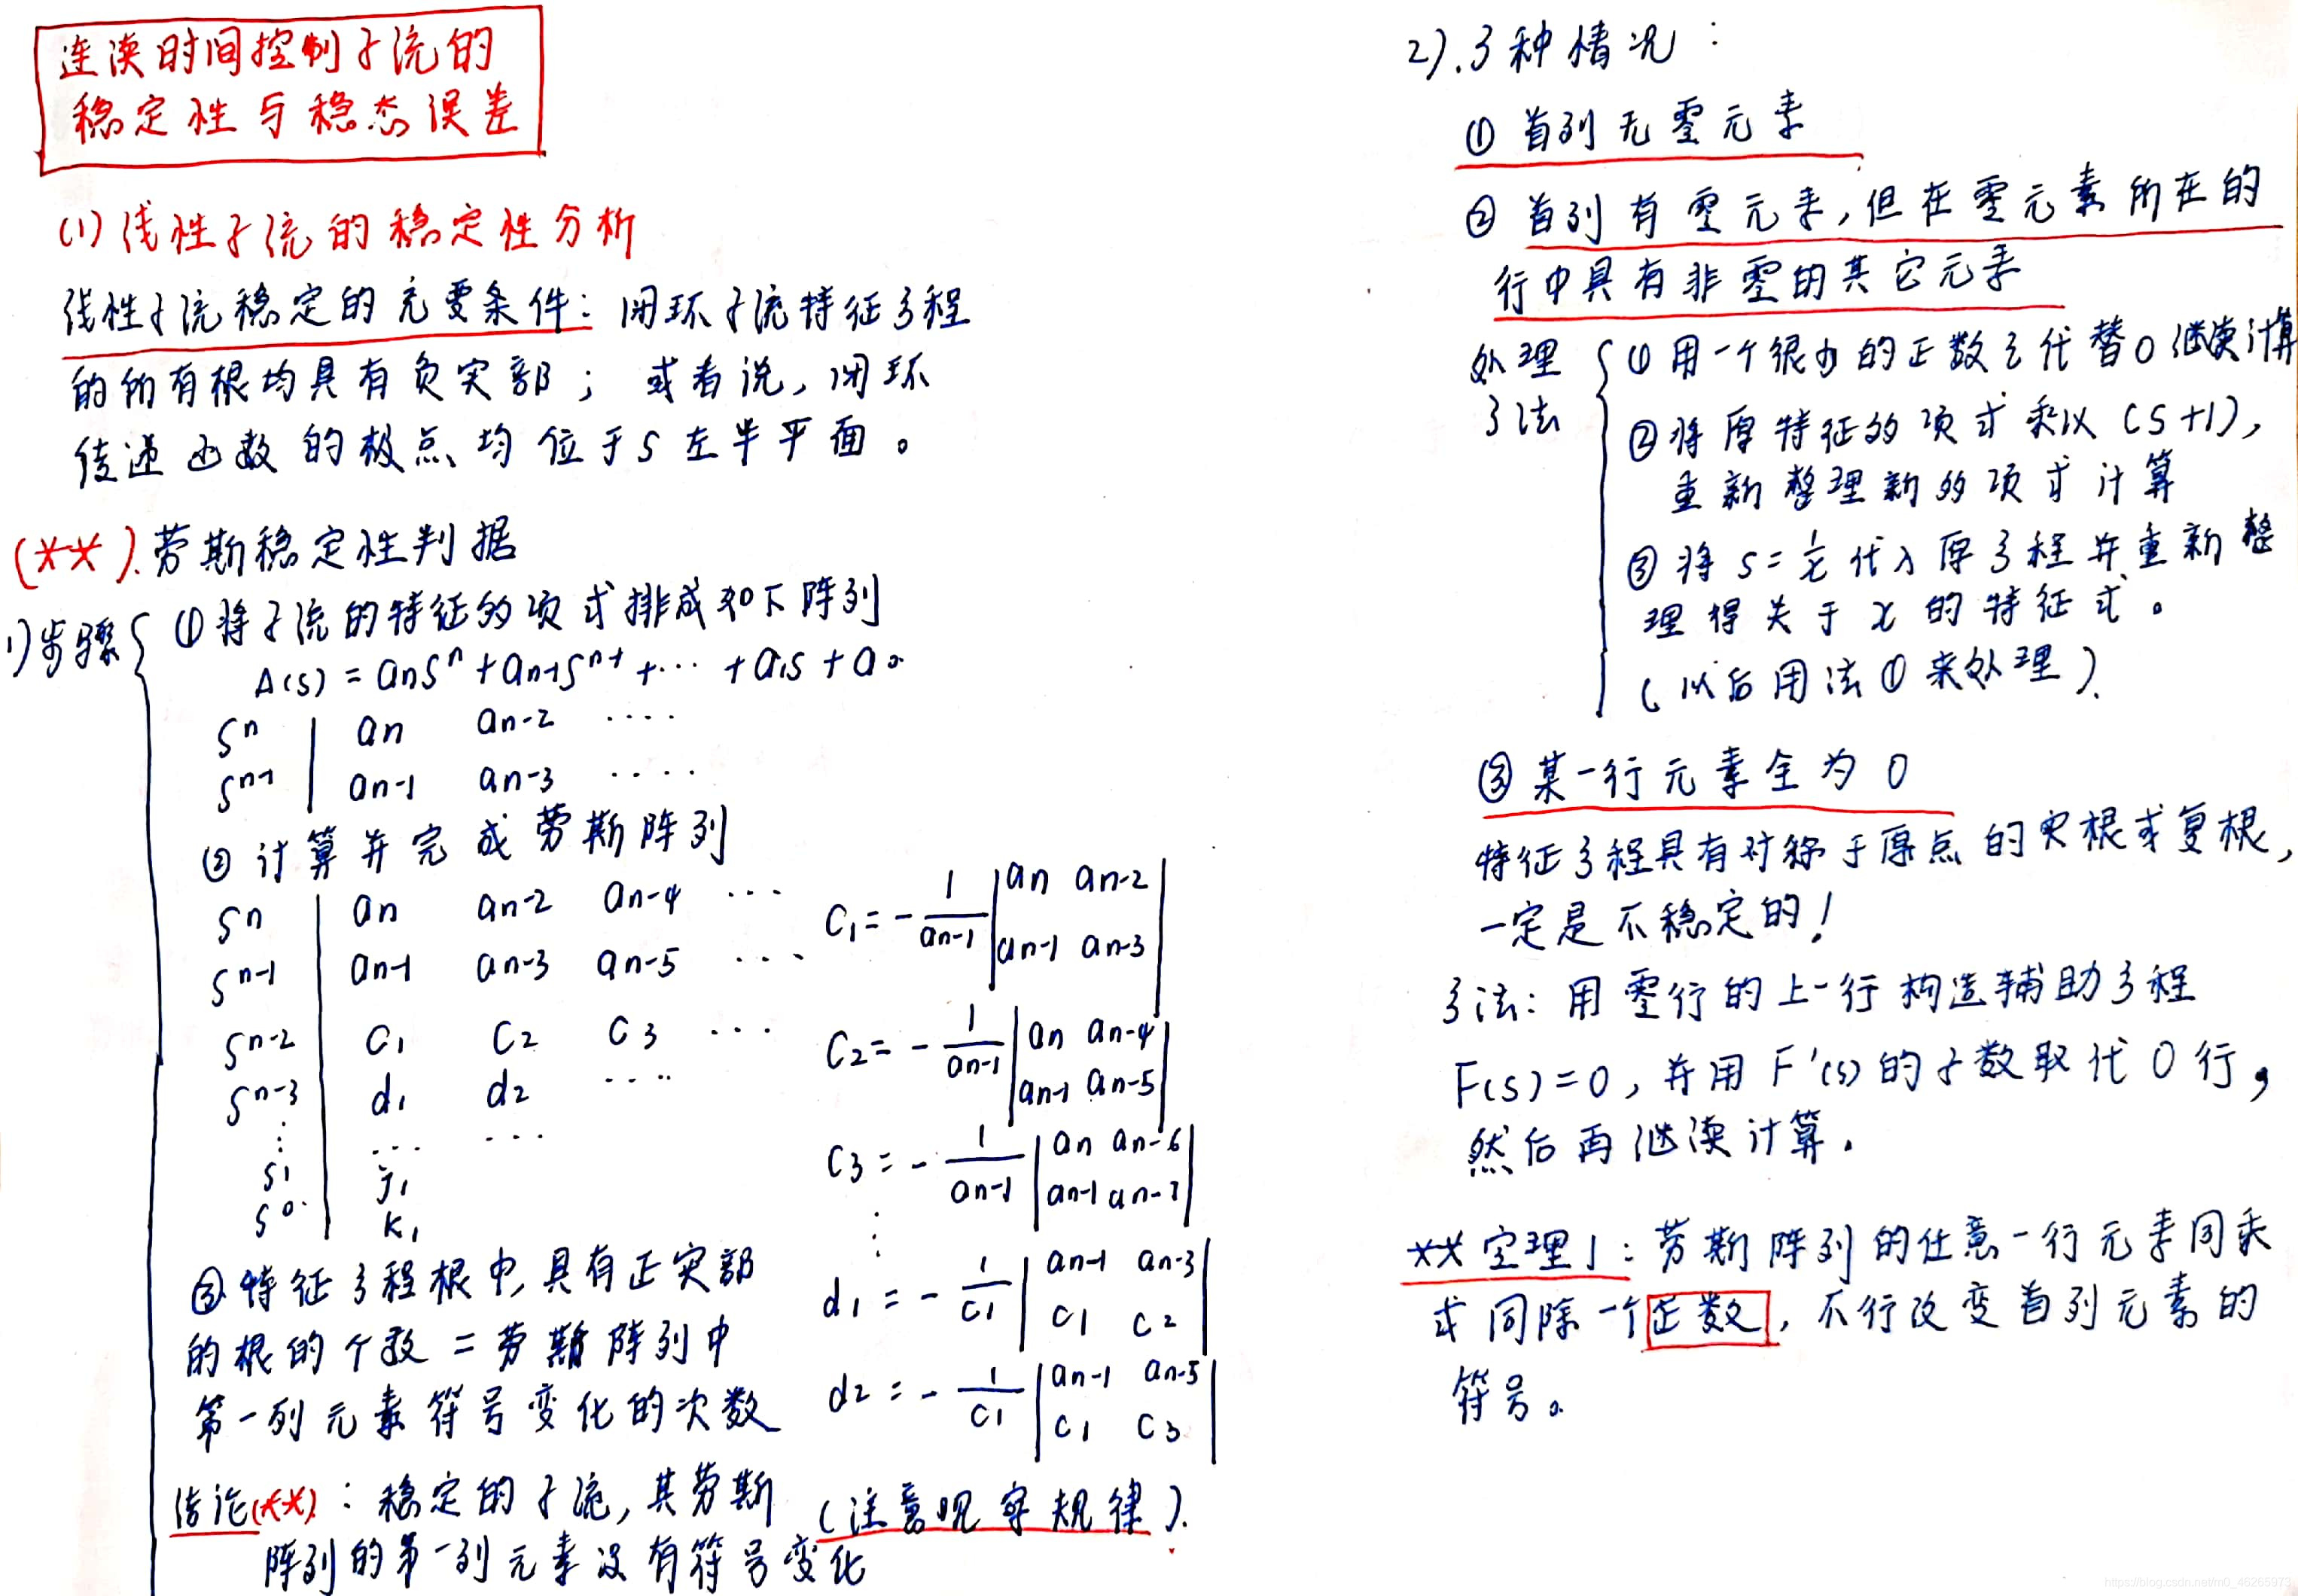 连续时间控制系统的
稳定性与稳态误差
(1) 线性系统的稳定性分析
线性系统稳定的充要条件：闭环系统特征方程
的所有根均具有负实部；或者说，闭环
传递函数的极点均位于S左半平面。
(**).劳斯稳定性判据
1)步骤 ①将系统的特征多项式排成如下阵列
A(s) = anS^n + an-1S^n-1 + ··· + a1s + a0
S^n | an an-2 ····
S^n-1 | an-1 an-3 ····
② 计算并完成劳斯阵列
S^n | an an-2 an-4 ···
S^n-1 | an-1 an-3 an-5 ···
S^n-2 | C1 C2 C3 ···
S^n-3 | d1 d2 ····
⋮ ··· ···
S^1 | j1
S^0 | k1
C1 = - 1/an-1 | an an-2
an-1 an-3 |
C2 = - 1/an-1 | an an-4
an-1 an-5 |
C3 = - 1/an-1 | an an-6
an-1 an-7 |
⋮
d1 = - 1/C1 | an-1 an-3
C1 C2 |
d2 = - 1/C1 | an-1 an-5
C1 C3 |
(注意观察规律).
③特征方程根中,具有正实部
的根的个数 = 劳斯阵列中
第一列元素符号变化的次数
结论(**)：稳定的系统,其劳斯
阵列的第一列元素没有符号变化
2).3种情况：
① 首列无零元素
② 首列有零元素,但在零元素所在的
行中具有非零的其它元素
处理方法
①用一个很小的正数ε代替0继续计算
②将原特征多项式乘以(S+1),
重新整理新多项式计算
③将 s=1/x 代入原方程并重新整
理得关于x的特征式。
(以后用法①来处理).
③某一行元素全为0
特征方程具有对称于原点的实根或复根,
一定是不稳定的!
方法：用零行的上一行构造辅助方程
F(s)=0,并用F'(s)的系数取代0行,
然后再继续计算.
** 定理1：劳斯阵列的任意一行元素同乘
或同除一个正数,不行改变首列元素的
符号。
https://blog.csdn.net/m0_46265973